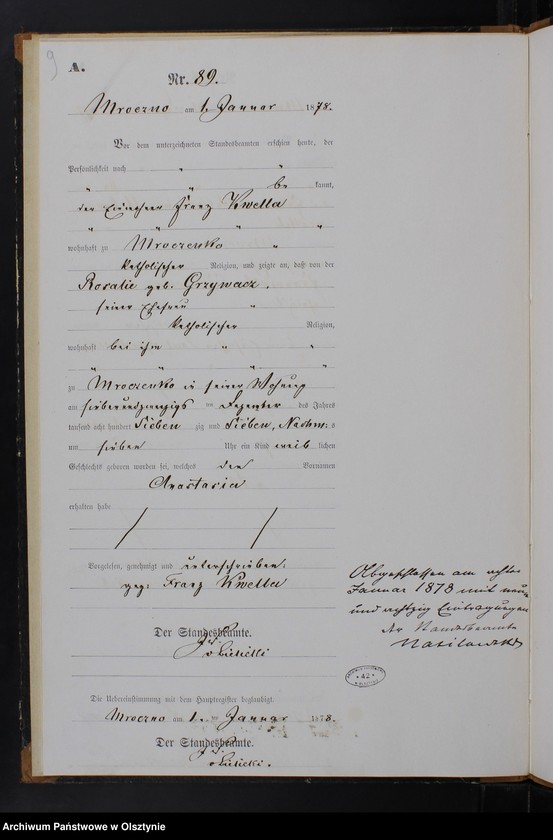 9
A.
Nr. 89.
Mroczno am 1. Januar 1878.
Vor dem unterzeichneten Standesbeamten erschien heute, der
Persönlichkeit nach " "
" " be kannt,
der Einwohner Franz Kwella
" " " "
wohnhaft zu Mroczenko "
katholischer Religion, und zeigte an, daß von der
Rosalie geb. Grzywacz,
seiner Ehefrau "
katholischer Religion,
wohnhaft bei ihm " "
" " " "
zu Mroczenko in seiner Wohnung
am siebenundzwanzigs ten Dezember des Jahres
tausend acht hundert Sieben zig und Sieben, Nachm: s
um sieben Uhr ein Kind weib lichen
Geschlechts geboren worden sei, welches den Vornamen
Anastasia
erhalten habe
Vorgelesen, genehmigt und unterschrieben.
gez: Franz Kwella
Der Standesbeamte.
Die Uebereinstimmung mit dem Hauptregister beglaubigt.
Mroczno am 1. ten Januar 1878.
Der Standesbeamte.
Abgeschlossen am achten
Januar 1878 mit neun
und achtzig Eintragungen
der Standesbeamte
Archiwum Państwowe w Olsztynie